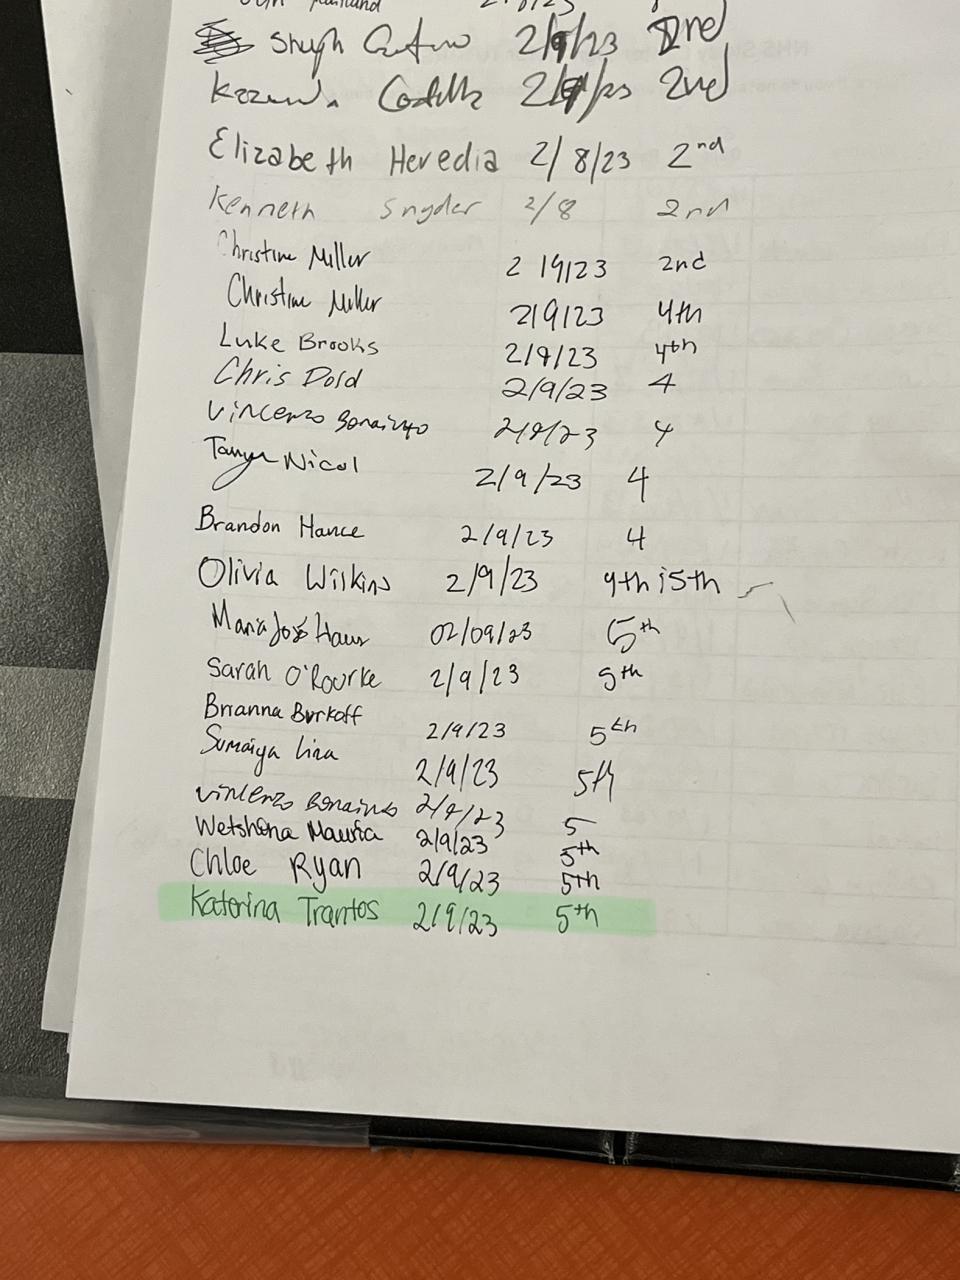 2/8/23
2/9/23 2nd
2nd
Elizabeth Heredia 2/8/23 2nd
Kenneth Snyder 2/8 2nd
Christine Miller 2/9/23 2nd
Christine Miller 2/9/23 4th
Luke Brooks 2/9/23 4th
Chris Dold 2/9/23 4
Vincenzo 2/9/23 4
Tanya Nicol 2/9/23 4
Brandon Hance 2/9/23 4
Olivia Wilkins 2/9/23 4th i5th
Maria José 02/09/23 5th
Sarah O'Rourke 2/9/23 5th
Brianna Burkoff 2/9/23 5th
Sumaiya 2/9/23 5th
Vincenzo 2/9/23 5
2/9/23 5th
Chloe Ryan 2/9/23 5th
Katerina Trantos 2/9/23 5th